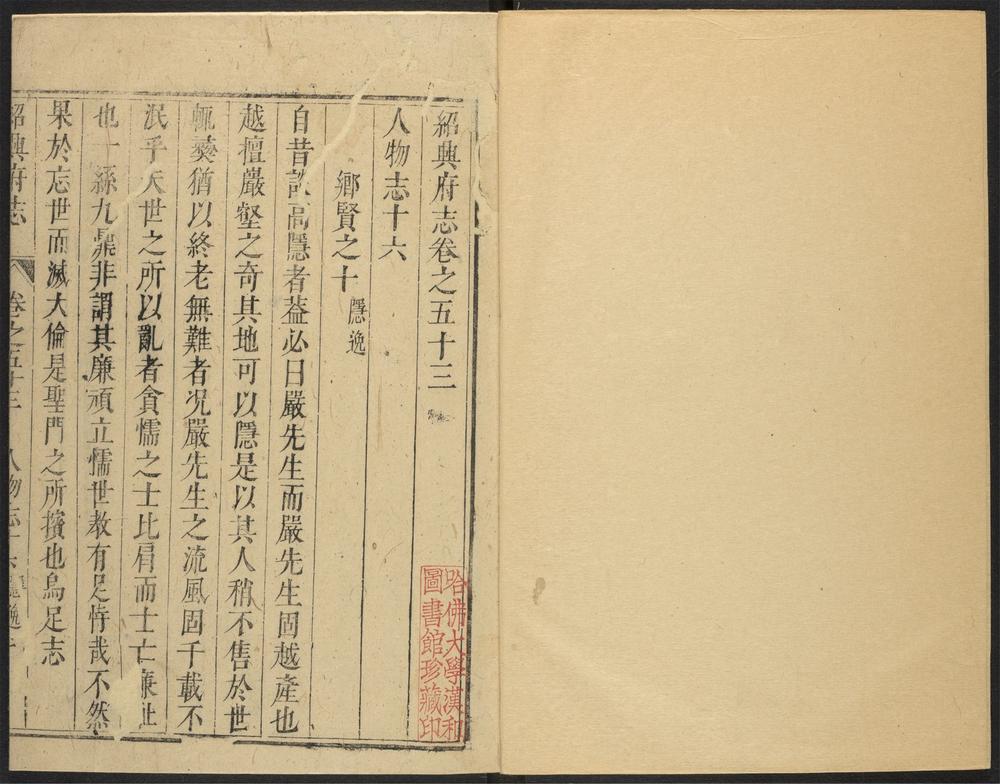 紹興府志卷之五十三
人物志十六
鄉賢之十 隱逸
自昔談高隱者葢必曰嚴先生而嚴先生固越產也
越擅巖壑之奇其地可以隱是以其人稍不售於世
輒薖猶以終老無難者况嚴先生之流風固千載不
泯乎夫世之所以亂者貪懦之士比肩而士亡廉恥
也一絲九鼎非謂其廉頑立懦世教有足恃哉不然
果於忘世而滅大倫是聖門之所擯也烏足志
紹興府志 卷之五十三 人物志十六 隱逸 一
哈佛大學漢和
圖書館珍藏印